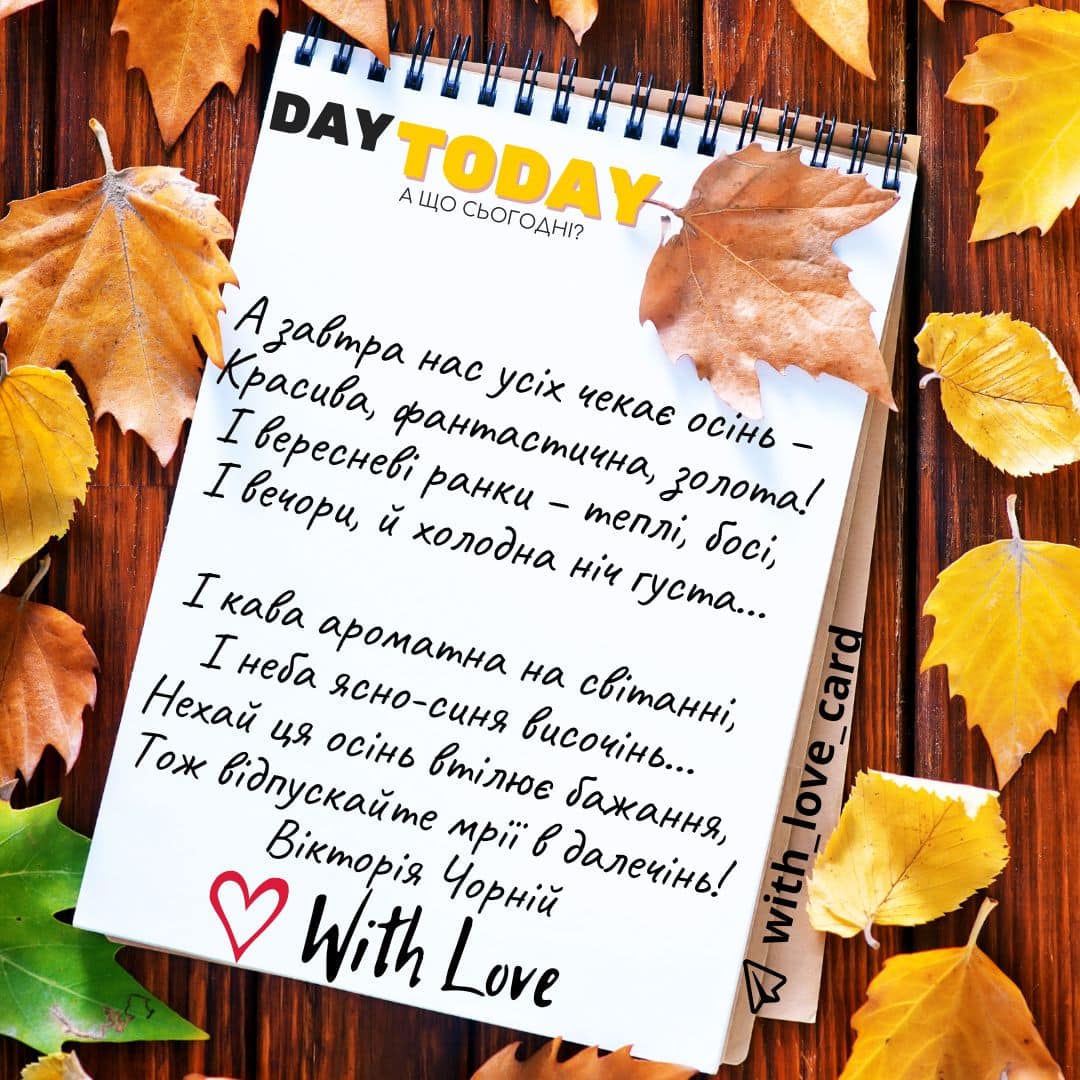 DAY TODAY
А ЩО СЬОГОДНІ?
А завтра нас усіх чекає осінь –
Красива, фантастична, золота!
І вересневі ранки – теплі, босі,
І вечори, й холодна ніч густа...
І кава ароматна на світанні,
І неба ясно-синя височінь...
Нехай ця осінь втілює бажання,
Тож відпускайте мрії в далечінь!
Вікторія Чорній
With Love
with_love_card